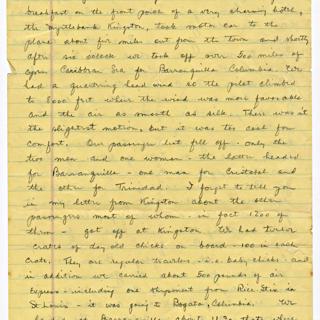 breakfast on the front porch of a very charming hotel,
the Myrtlebank Kingston, took motor car to the
plane about four miles out from the town and shortly
after six oclock we took off over 500 miles of
open Caribbean Sea for Barranquilla Columbia. We
had a quartering head wind so the pilot climbed
to 8000 feet where the wind was most favorable
and the air as smooth as silk. There wasn't
the slightest motion, but it was too cool for
comfort. Our passenger list fell off - only the
two men and one woman - the latter headed
for Barranquilla - one man for Cristobal and
the other for Trinidad. I forgot to tell you
in my letter from Kingston about the other
passengers most of whom - in fact 1200 of
them - got off at Kingston. We had twelve
crates of day old chicks on board - 100 in each
crate. They are regular travelers - i.e. baby chicks - and
in addition we carried about 500 pounds of air
Express - including one shipment from Rice-Stix in
St Louis - it was going to Bogata, Columbia. We
Barranquilla about 11:30 that's where